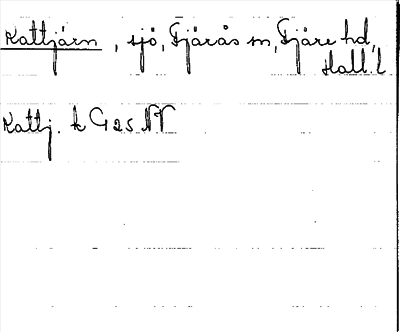 Kattjärn, sjö, Fjärås sn, Fjäre hd,
Hall. l
Kattj. k G 25 NV